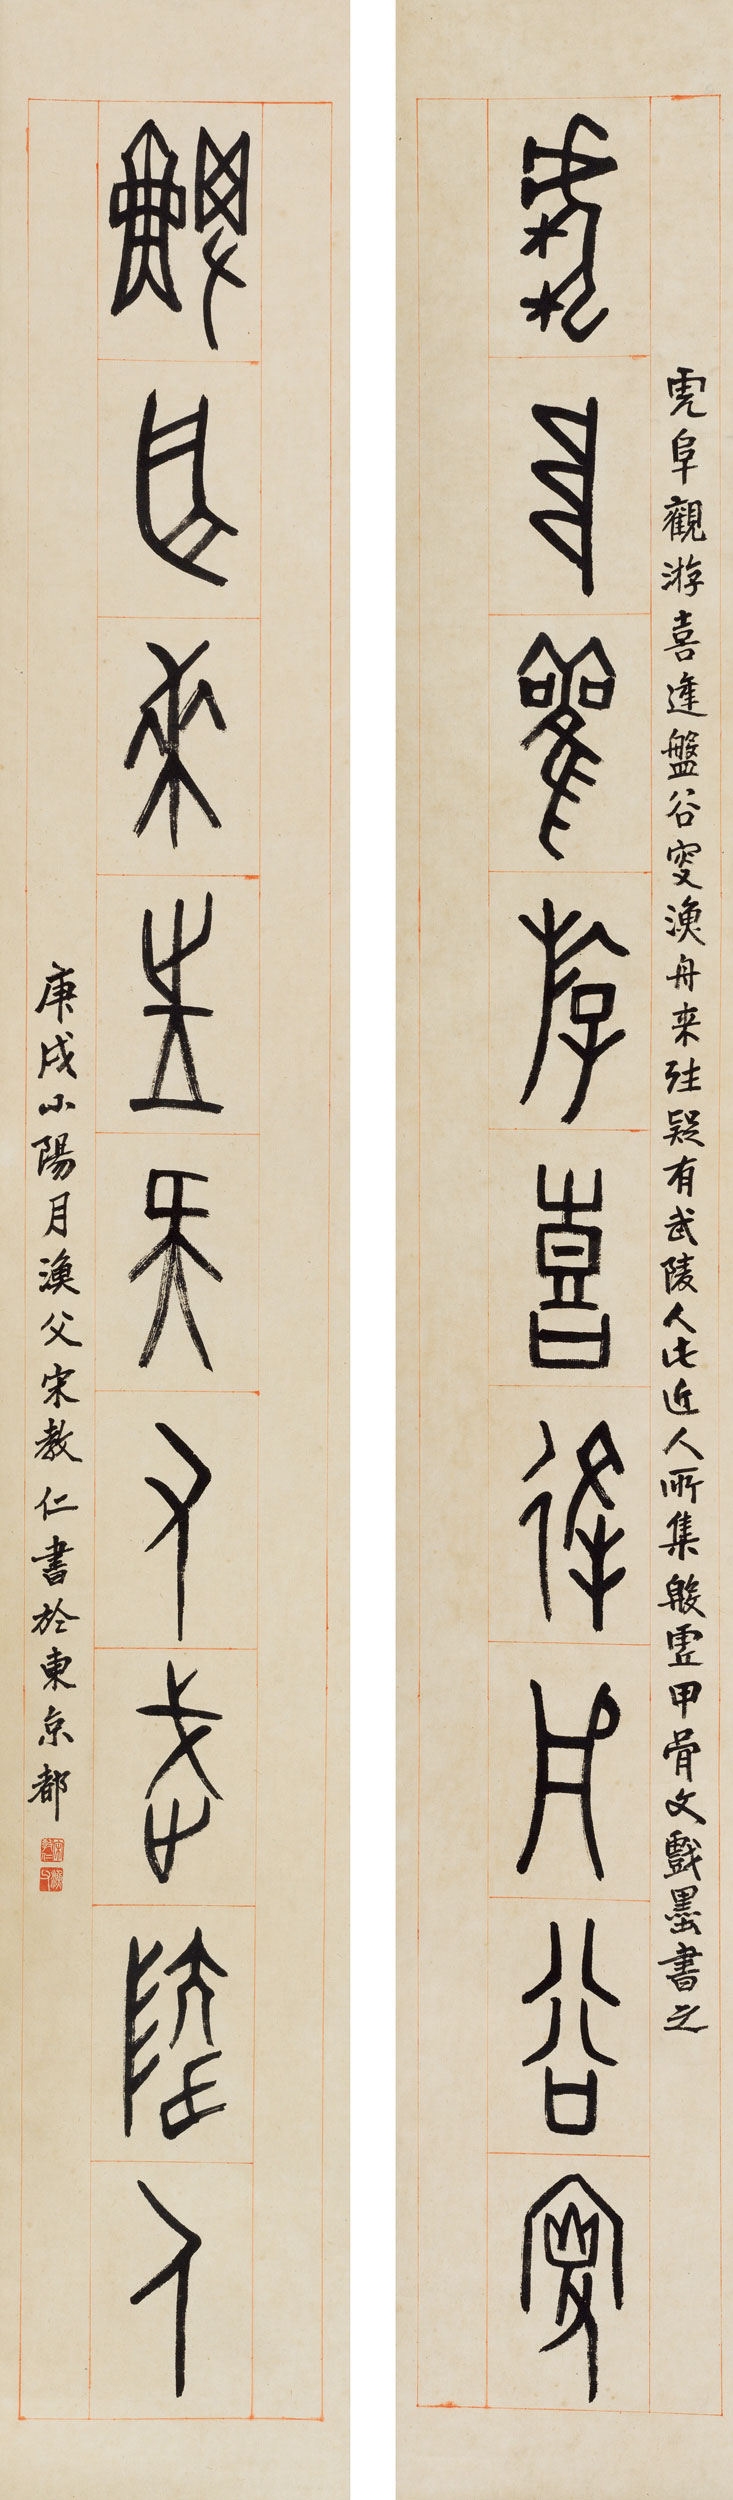 虎阜觀游喜逢盤谷叟漁舟来往疑有武陵人此近人所集殷虛甲骨文戲墨書之
虎阜觀游喜逢盤谷叟
漁舟來往疑有武陵人
庚戌小陽月漁父宋教仁書於東京都